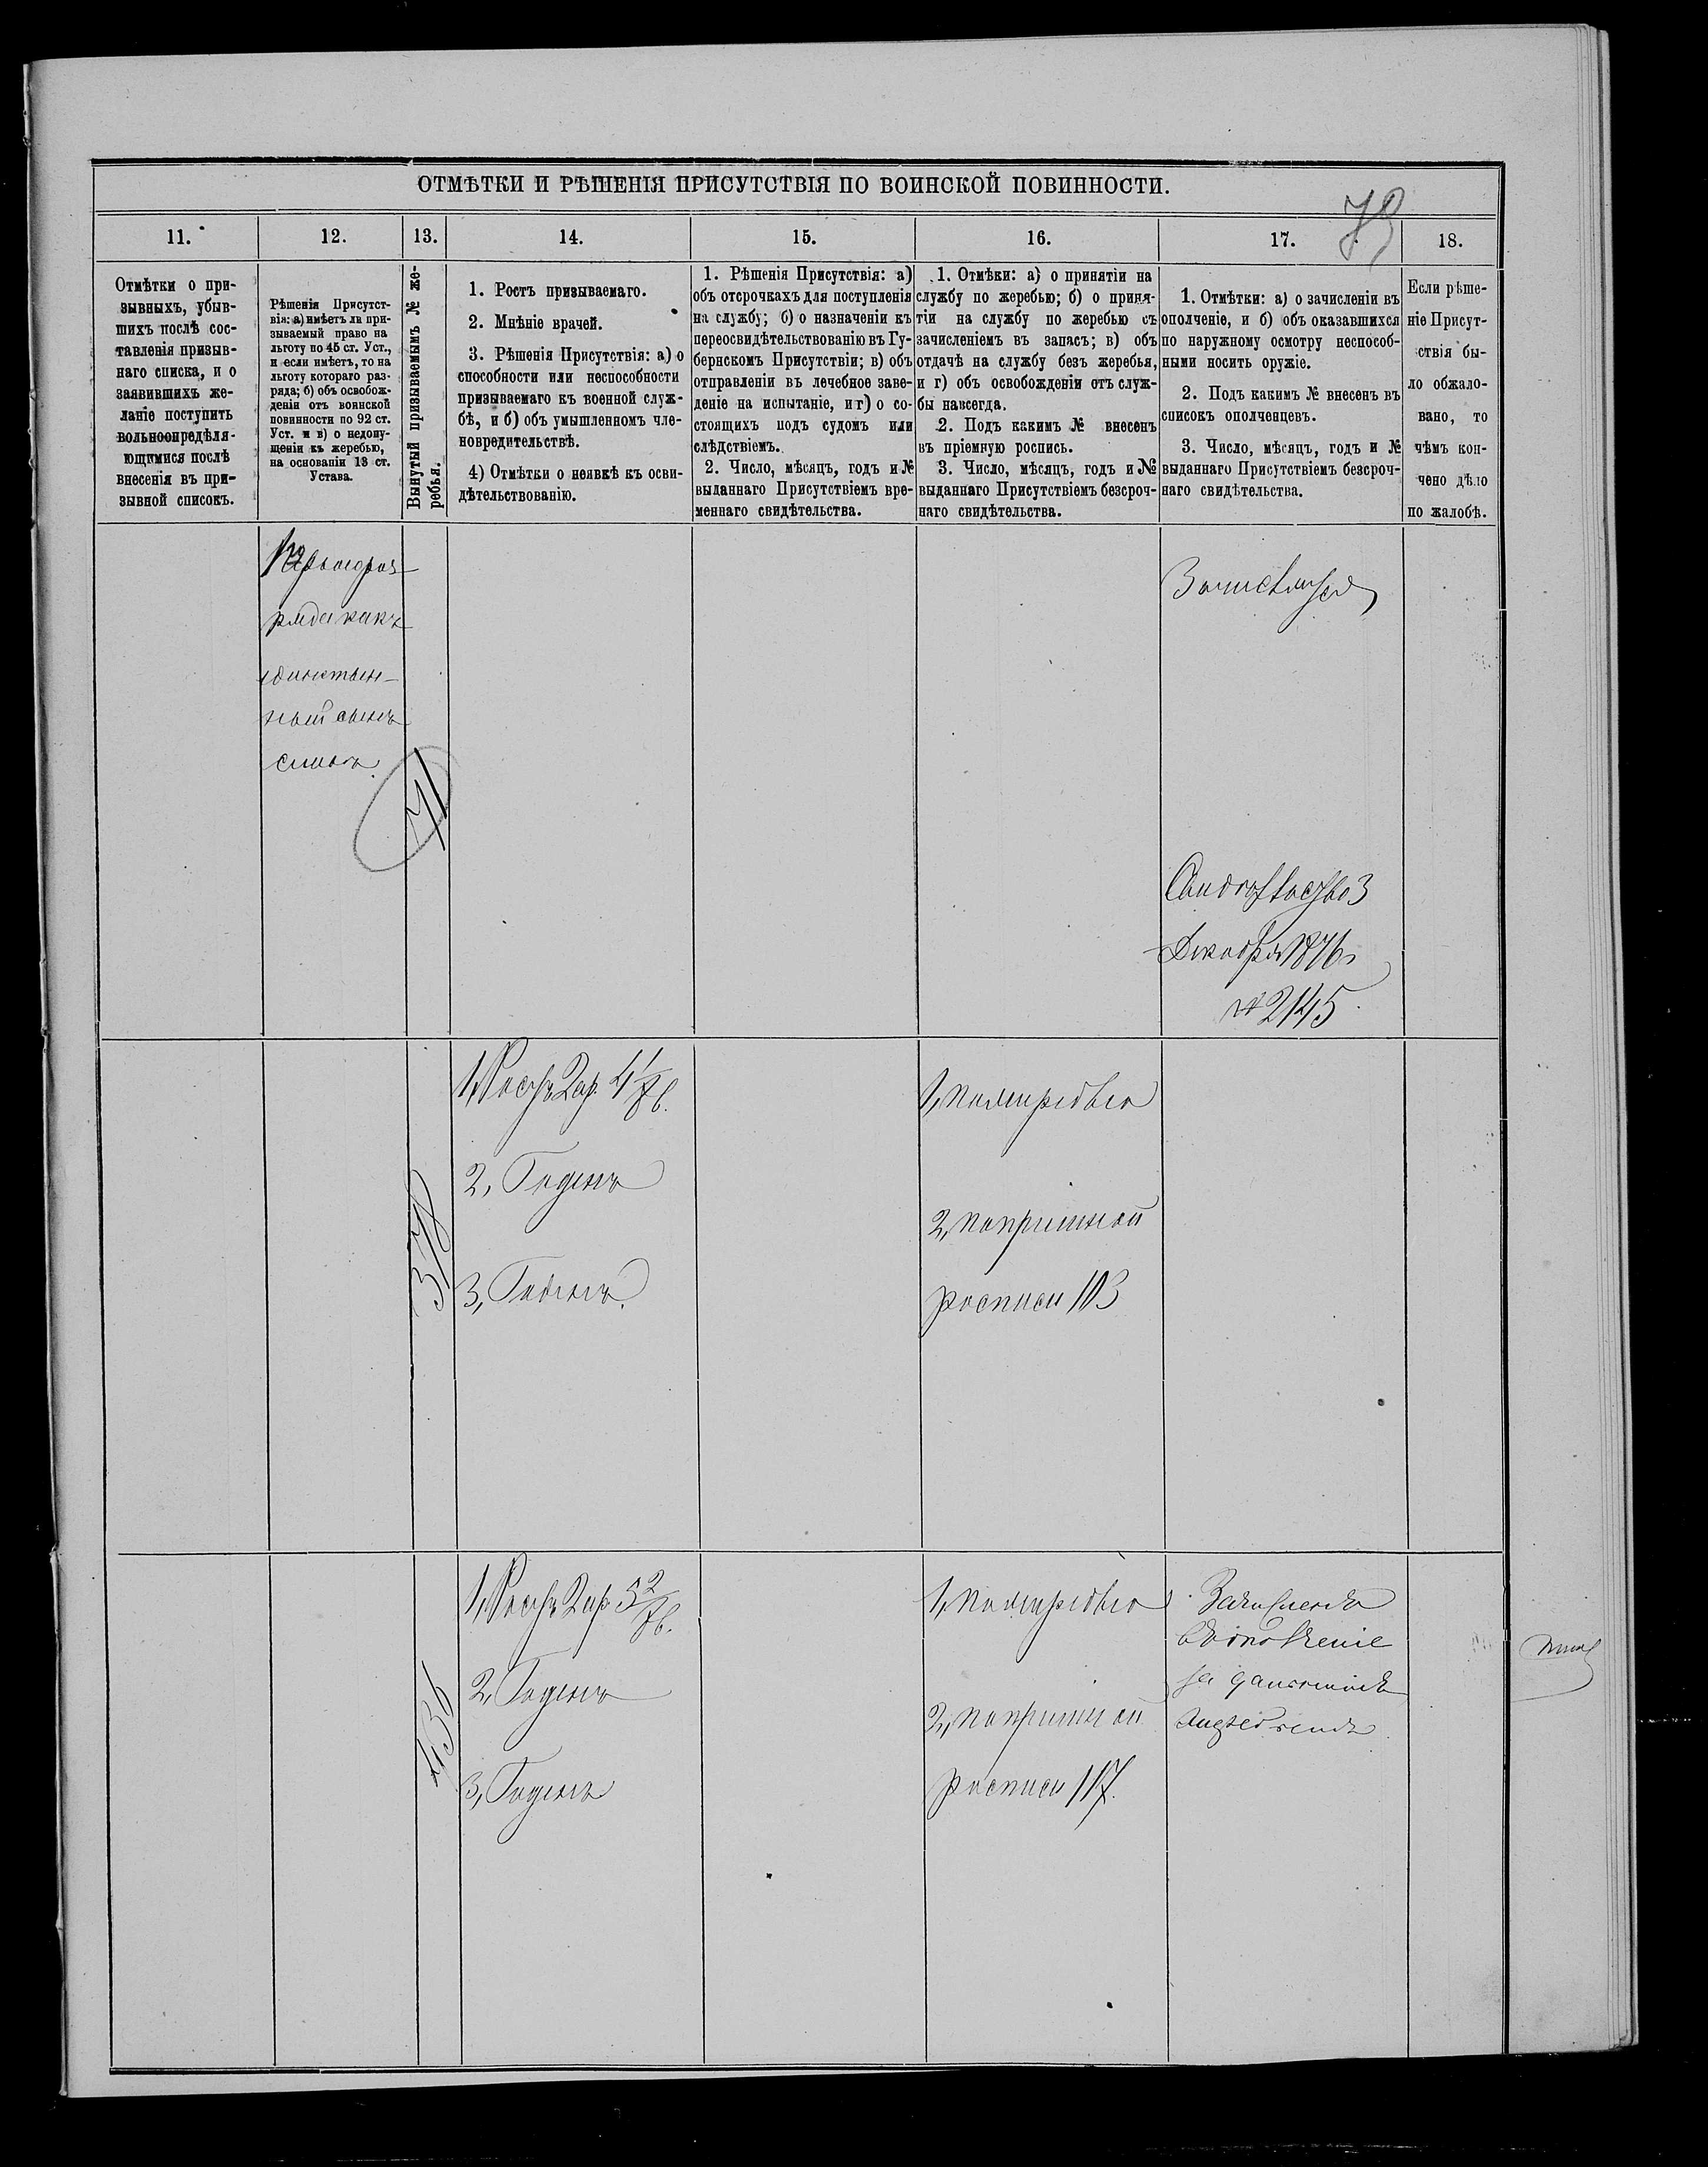 ОТМѢТКИ И РѢШЕНІЯ ПРИСУТСТВІЯ ПО ВОИНСКОЙ ПОВИННОСТИ.
11.
12.
13.
14.
15.
16.
17.
18.
Отмѣтки о при-
зывныхъ, убыв-
шихъ послѣ сос-
тавленія призыв-
наго списка, и о
заявившихъ же-
ланіе поступить
вольноопредѣля-
ющимися послѣ
внесенія въ при-
зывной списокъ.
Рѣшенія Присутст-
вія: а) имѣетъ ли при-
зываемый право на
льготу по 45 ст. Уст.,
и если имѣетъ, то на
льготу котораго раз-
ряда; б) объ освобож-
деніи отъ воинской
повинности по 92 ст.
Уст. и в) о недопу-
щеніи къ жеребью,
на основаніи 13 ст.
Устава.
Вынутый призываемымъ № же-
ребья.
1. Ростъ призываемаго.
2. Мнѣніе врачей.
3. Рѣшенія Присутствія: а) о
способности или неспособности
призываемаго къ военной служ-
бѣ, и б) объ умышленномъ чле-
новредительствѣ.
4) Отмѣтки о неявкѣ къ осви-
дѣтельствованію.
1. Рѣшенія Присутствія: а)
объ отсрочкахъ для поступленія
на службу; б) о назначеніи къ
переосвидѣтельствованію въ Гу-
бернскомъ Присутствіи; в) объ
отправленіи въ лечебное заве-
деніе на испытаніе, и г) о со-
стоящихъ подъ судомъ или
слѣдствіемъ.
2. Число, мѣсяцъ, годъ и №
выданнаго Присутствіемъ вре-
меннаго свидѣтельства.
1. Отмѣки: а) о принятіи на
службу по жеребью; б) о приня-
тіи на службу по жеребью съ
зачисленіемъ въ запасъ; в) объ
отдачѣ на службу безъ жеребья,
и г) объ освобожденіи отъ служ-
бы навсегда.
2. Подъ какимъ № внесенъ
въ пріемную роспись.
3. Число, мѣсяцъ, годъ и №
выданнаго Присутствіемъ безсроч-
наго свидѣтельства.
1. Отмѣтки: а) о зачисленіи въ
ополченіе, и б) объ оказавшихся
по наружному осмотру неспособ-
ными носить оружіе.
2. Подъ какимъ № внесенъ въ
списокъ ополченцевъ.
3. Число, мѣсяцъ, годъ и №
выданнаго Присутствіемъ безсроч-
наго свидѣтельства.
Если рѣше-
ніе Присут-
ствія бы-
ло обжало-
вано, то
чѣмъ кон-
чено дѣло
по жалобѣ.
Перваго раз-
ряда какъ
единствен-
ный сынъ
71
Свидѣтельство 3
Декабря 1876
№ 2145
378
1, Ростъ 2 ар. 4 1/8 в.
2, Годенъ
3, Годенъ.
1, По жеребью
2, по пріемной
росписи 103
436
1, Ростъ 2 ар. 5 2/8 в.
2, Годенъ
3, Годенъ
1, По жеребью
2, по пріемной
росписи 117.